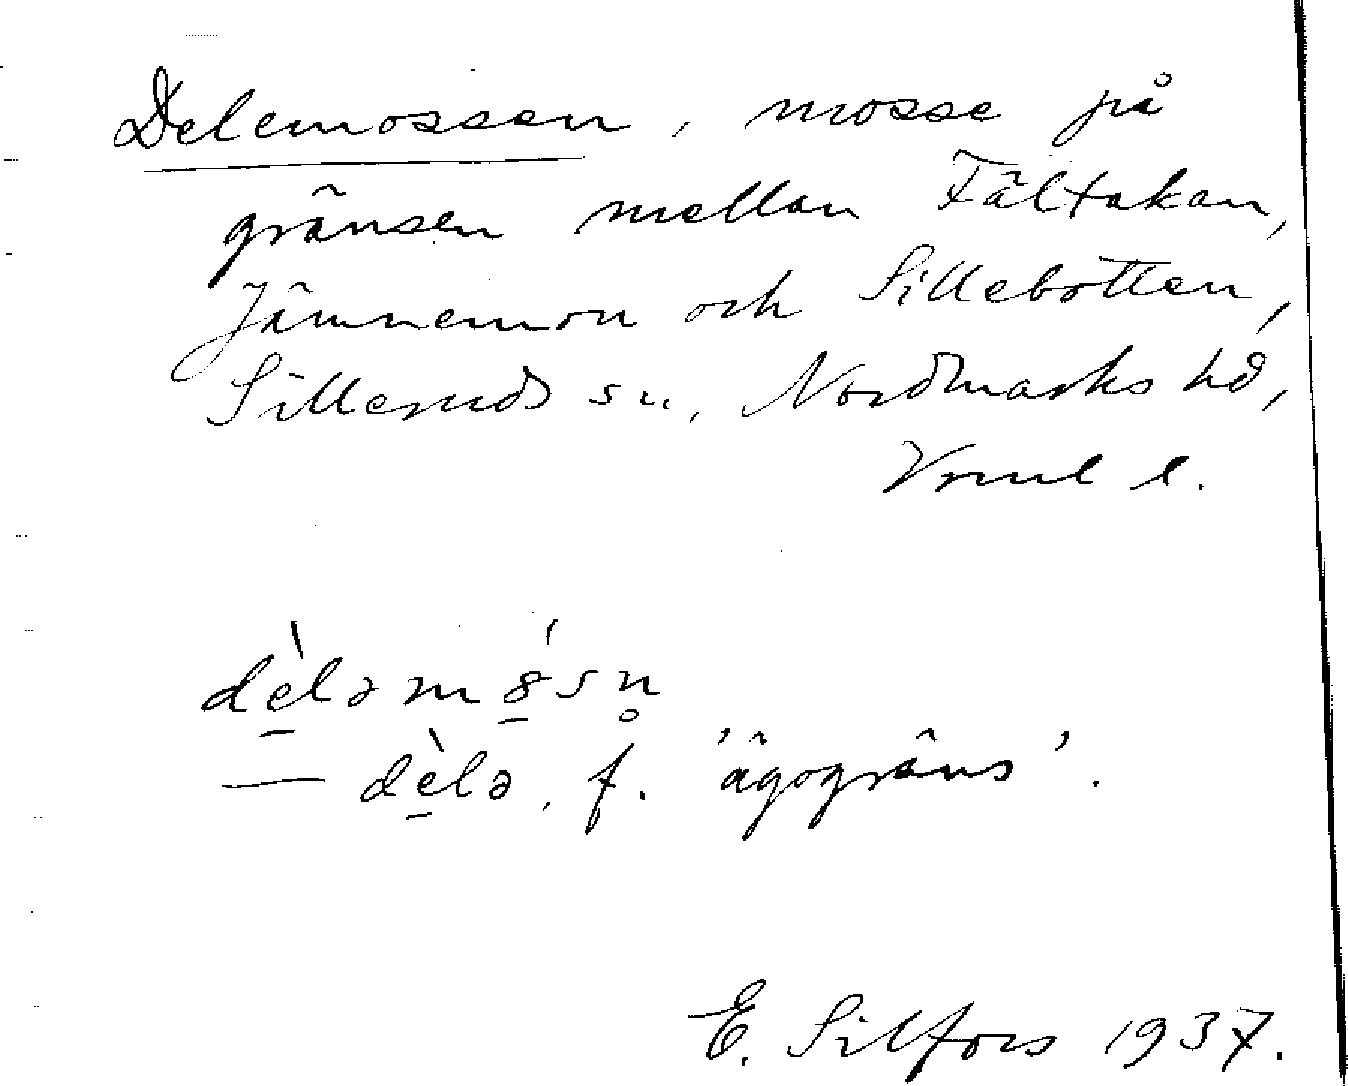 Delemossen, mosse på
gränsen mellan Fältakan,
Jämnemon och Sillebotten,
Silleruds sn, Nordmarks hd,
Vrml l.
dèləm8́sn̥
— dèlə, f. 'ägogräns'.
E. Silfors 1937.